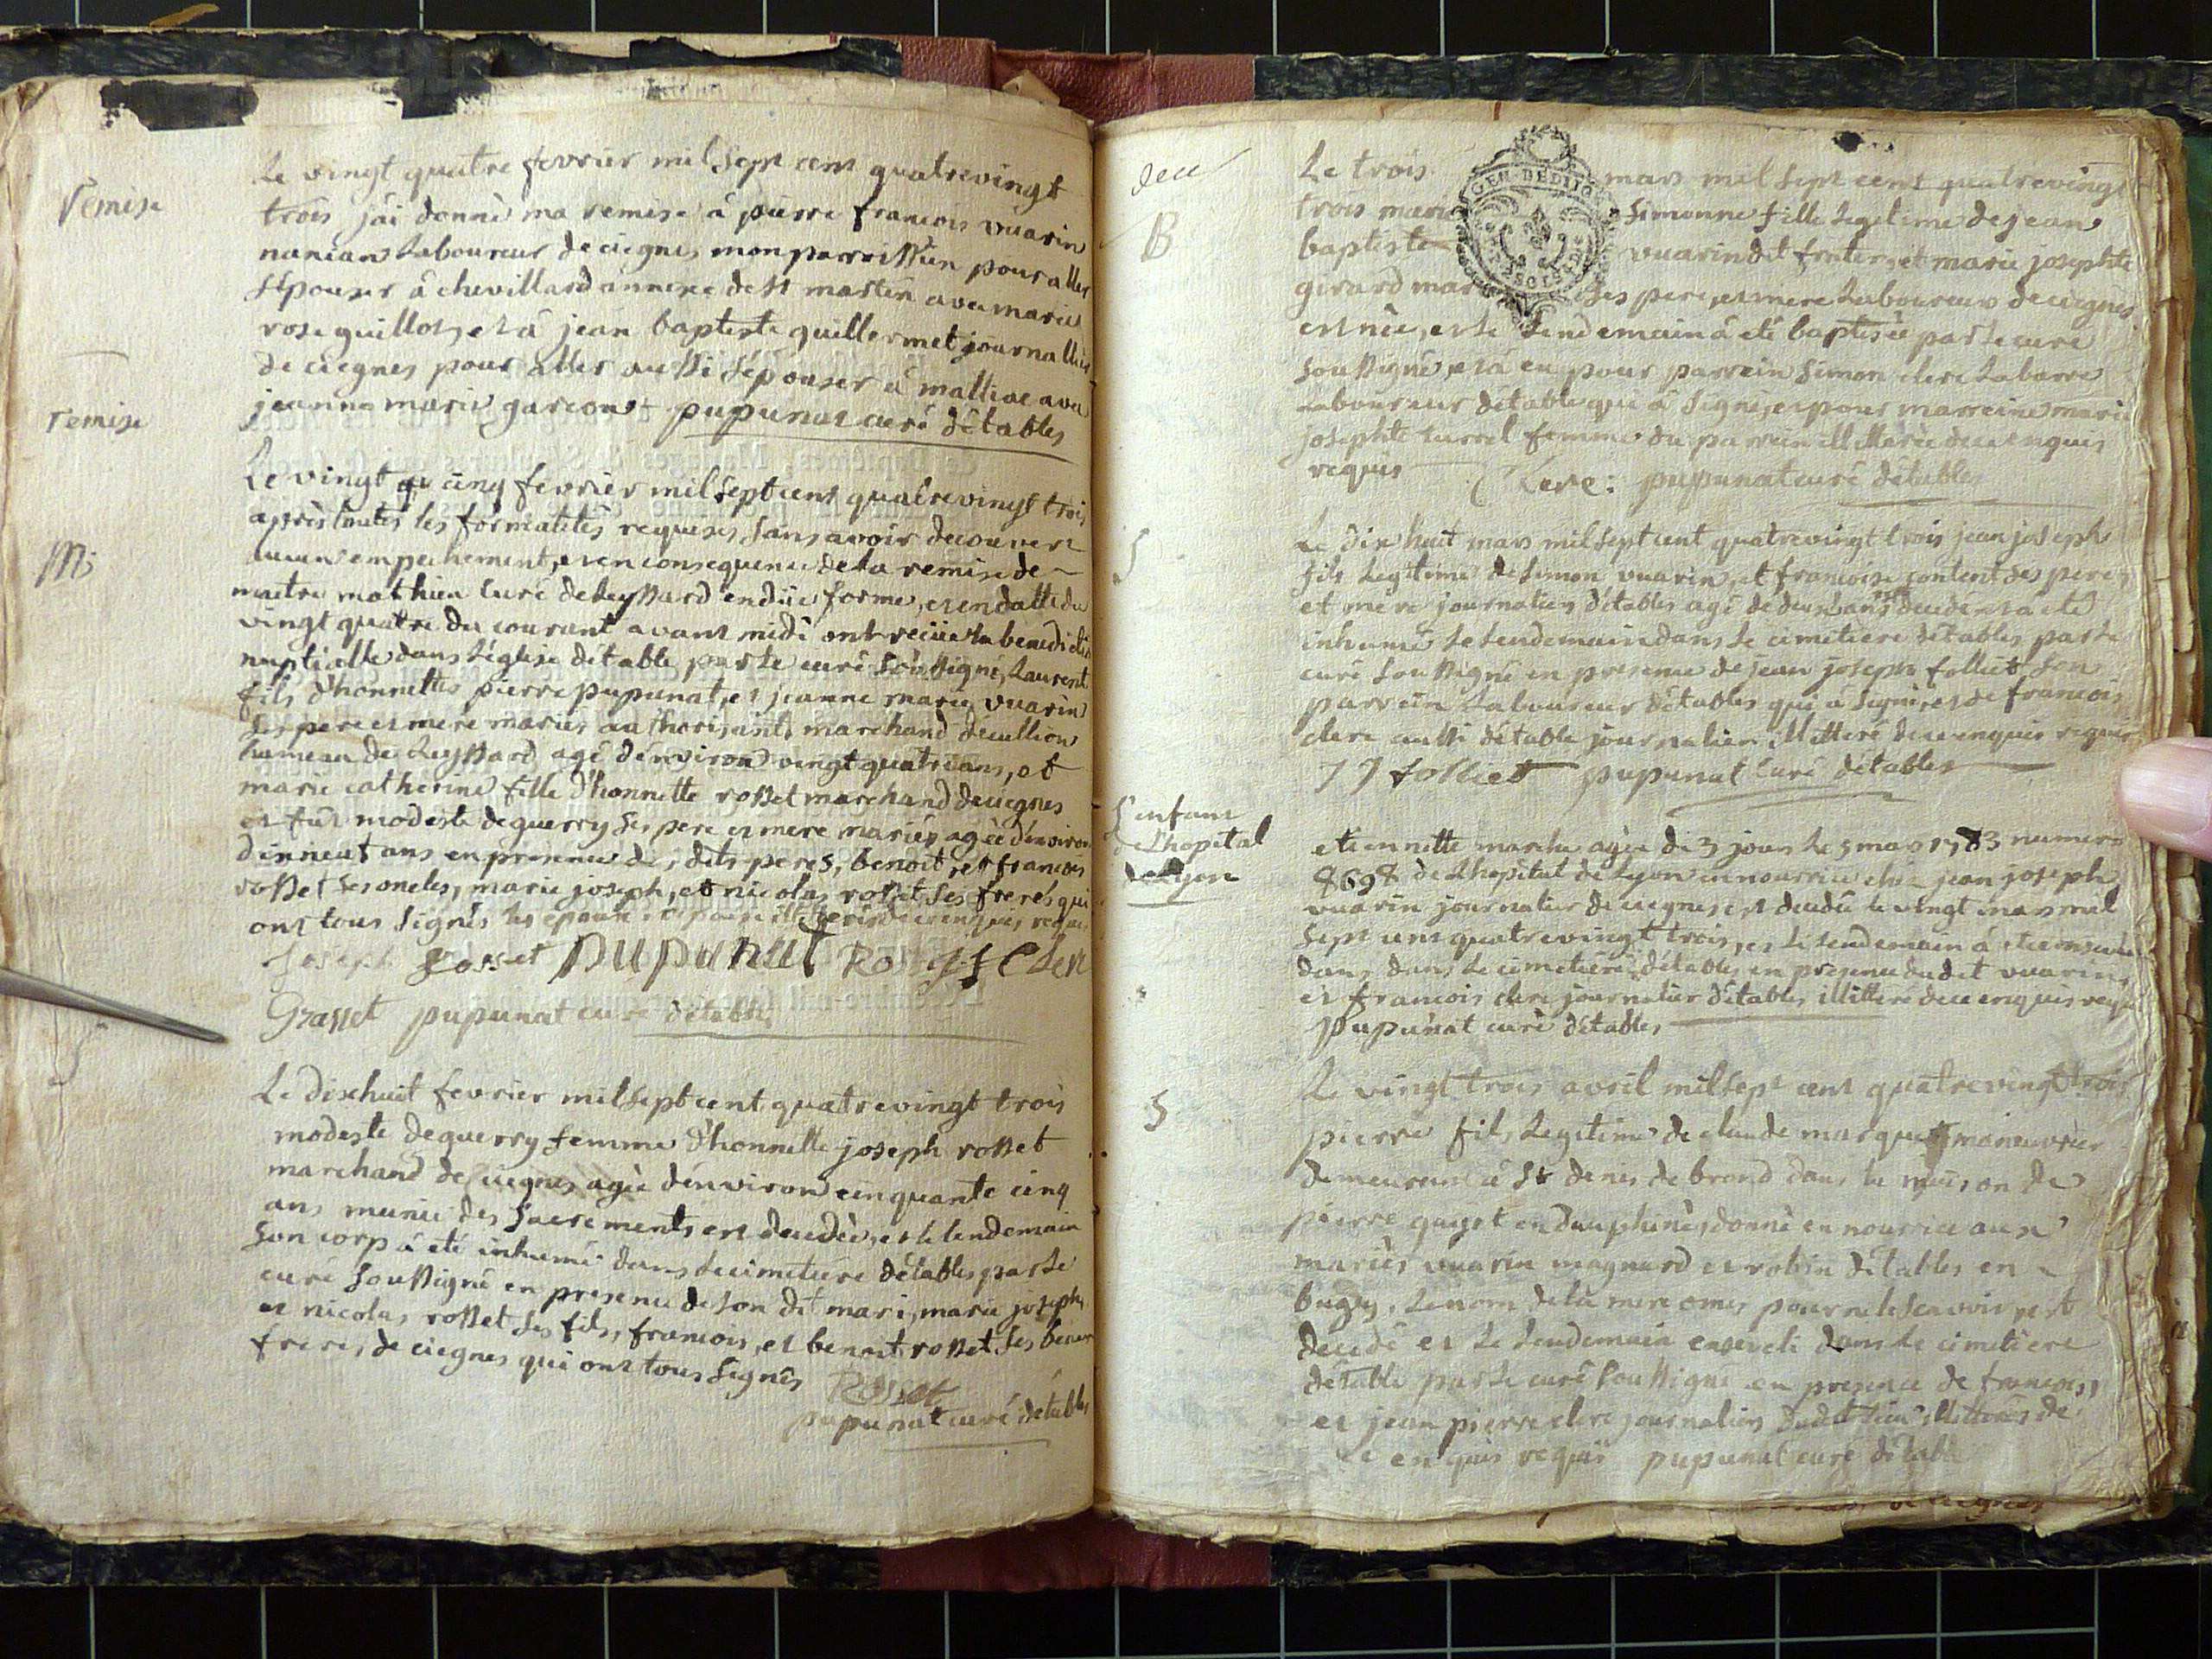 Remise
Le vingt quatre fevrier mil sept cent quatrevingt
trois j'ai donné ma remise á pierre francois vuarin
nancan Laboureur de ciegnes mon parroissien pour aller
s'épouser á chevillard annexe de st martin avec marie
rose guillot, et á jean baptiste guillermet journallier
de ciegnes pour aller aussi s'épouser á malliac avec
remise
jeanne marie garcon pupunat curé d'étables
Le vingt cinq fevrier mil sept cent quatrevingt trois
après toutes les formalités requises, sans avoir decouvert
M
aucun empechement, et en consequence de la remise de
maitre mathieu curé de leyssard en düe forme, et en datte du
vingt quatre du courant avant midi ont reçüe la benedictio
nuptialle dans l'église d'étable par le curé soussigné, Laurent
fils d'honnettes pierre pupunat, et jeanne marie vuarin
ses pere et mere mariés authorisants marchand décullion
hameau de Leyssard agé d'environ vingt quatre ans, et
marie catherine fille d'honnette rosset marchand de ciegnes
et fut modeste dequerry ses pere et mere mariés agée d'environ
dixneuf ans en presence des dits peres, benoit, et francois
rosset ses oncles, marie joseph, et nicolas rosset ses freres qui
ont tous signés les epoux illiterés de ce enquis, requis
Joseph Rosset pupunat
Grasset pupunat curé d'étables
S
Le dixhuit fevrier mil sept cent quatrevingt trois
modeste dequerry femme d'honnette joseph rosset
marchand de ciegnes agée d'environ cinquante cinq
ans munie des sacrements est decedée, et le lendemain
son corp á eté inhumé dans le cimetiere d'étables par le
curé soussigné en presence de son dit mari, marie joseph,
et nicolas rosset ses fils, francois, et benoit rosset ses beaux
freres de ciegnes qui ont tous signés
Rosset
pupunat curé d'étables
GEN DEDIT
B
Le trois mars mil sept cent quatrevingt
trois marie simonne fille legitime de jean
baptiste vuarin dit frater, et marie josephte
girard mar ses pere, et mere Laboureurs de ciegnes
est née, et le lendemain á eté baptisée par le curé
soussigné, et á eu pour parrein simon clerc Labarre
Laboureur d'étable qui á signé, et pour marreine marie
josephte turrel femme du parrein illitterée de ce enquis
requis Clerc: pupunat curé d'étables
S
Le dix huit mars mil sept cent quatrevingt trois jean joseph
fils legitime de simon vuarin, et francoise content ses pere,
et mere journaliers d'étables agé de deux ans est decedé et á eté
inhumé le lendemain dans le cimetiere d'étables par le
curé soussigné en presence de jean joseph folliet son
parrein Laboureur d'étables qui á signé, et de francois
clerc aussi d'étable journalier illitteré de ce enquis requis
JJ folliet pupunat curé d'étables
S enfant
de L'hopital
de Lyon
etiennette marche agée de 3 jours le 5 mars 1783 numero
8698 de L'hopital de Lyon en nourrice chez jean joseph
vuarin journalier de ciegnes est decedée le vingt mars mil
sept cent quatrevingt trois, et le lendemain á eté
dans dans le cimetiere d'étables en presence du dit vuarin,
et francois clerc journalier d'étables illitteré de ce enquis requis
pupunat curé d'étables
S
Le vingt trois avril mil sept cent quatrevingt trois
pierre fils legitime de claude marquet maneuvrier
demeurant á st denis de brond dans la maison de
pierre guyot en dauphiné, donné en nourrice aux
mariés vuarin magnard et robin d'étables en
bugey, Le nom de la mere omis pour ne le scavoir est
decedé et le lendemain enseveli dans le cimetiere
d'étable par le curé soussigné en presence de francois,
et jean pierre clerc journaliers dudit lieu illitterés de
ce enquis requis pupunat curé d'étable